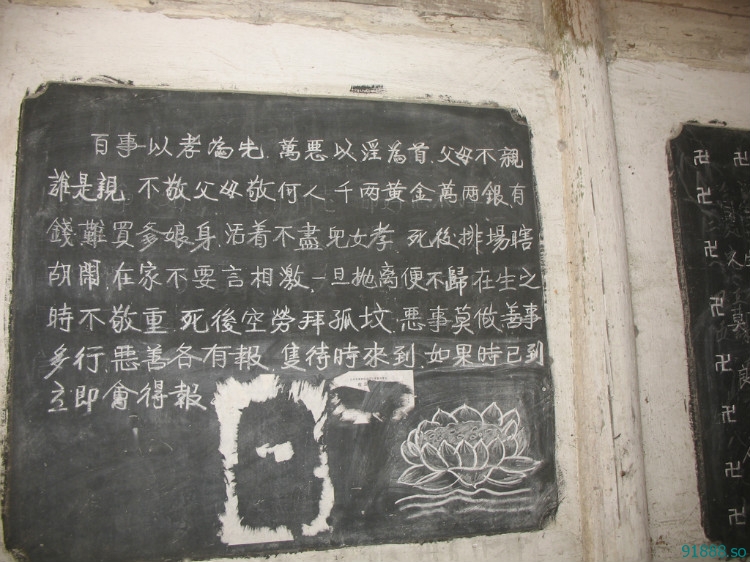 百事以孝為先,萬惡以淫為首,父母不親
誰是親,不敬父母敬何人,千两黃金萬两銀有
錢難買爹娘身,活着不盡兒女孝,死後排場瞎
胡鬧,在家不要言相激,一旦抛离便不歸在生之
時不敬重,死後空勞拜孤墳,惡事莫做,善事
多行,惡善各有報,隻待時來到,如果時已到
立即會得報
卍 卍
卍
卍
卍
卍
卍
卍
卍
卍
91888.so